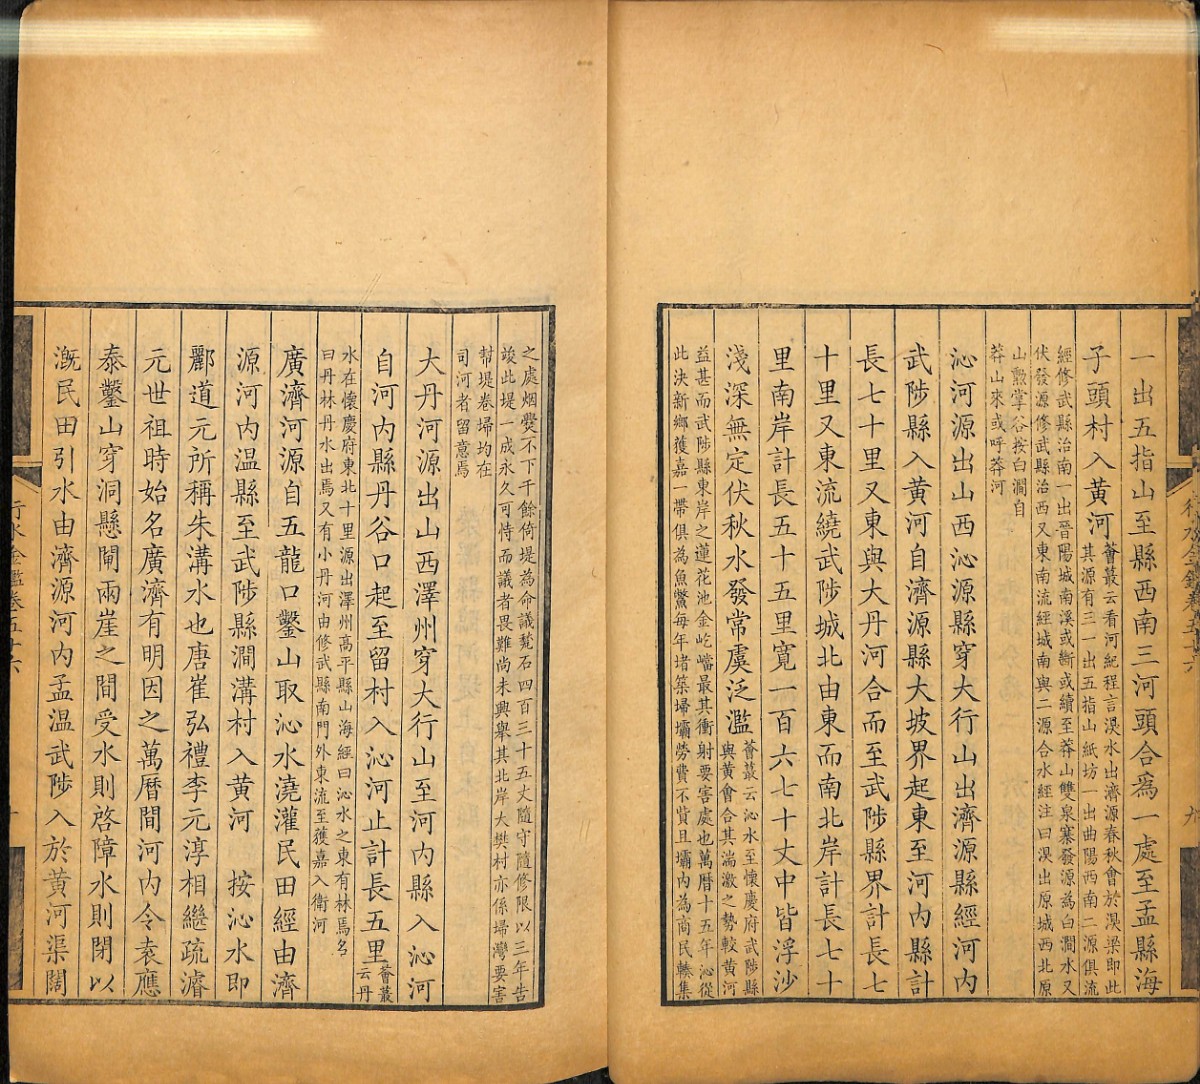 一出五指山至縣西南三河頭合爲一處至孟縣海
子頭村入黃河薈蕞云看河紀程言湨水出濟源春秋會於湨梁即此
其源有三一出五指山紙坊一出曲陽西南二源俱流
經修武縣治南一出晉陽城南溪或斷或續至莽山雙泉寨發源為白澗水又
伏發源修武縣治西又東南流經城南與二源合水經注曰湨出原城西北原
山勲掌谷按白澗自
莽山來或呼莽河
沁河源出山西沁源縣穿大行山出濟源縣經河內
武陟縣入黃河自濟源縣大坡界起東至河內縣計
長七十里又東與大丹河合而至武陟縣界計長七
十里又東流繞武陟城北由東而南北岸計長七十
里南岸計長五十五里寬一百六七十丈中皆浮沙
淺深無定伏秋水發常虞泛濫薈蕞云沁水至懷慶府武陟縣
與黃會合其湍激之勢較黃河
益甚而武陟縣東岸之蓮花池金屹嵖最其衝射要害處也萬曆十五年沁從
此決新鄉獲嘉一帶俱為魚鱉每年堵築埽壩勞費不貲且壩內為商民輳集
之處烟爨不下千餘倚堤為命議甃石四百三十五丈隨守隨修限以三年告
竣此堤一成永久可恃而議者畏難尚未興舉其北岸大樊村亦係埽灣要害
幇堤卷埽均在
司河者留意焉
大丹河源出山西澤州穿大行山至河內縣入沁河
自河內縣丹谷口起至留村入沁河止計長五里薈蕞
云丹
水在懷慶府東北十里源出澤州高平縣山海經曰沁水之東有林焉名
曰丹林丹水出焉又有小丹河由修武縣南門外東流至獲嘉入衛河
廣濟河源自五龍口鑿山取沁水澆灌民田經由濟
源河內温縣至武陟縣澗溝村入黃河 按沁水即
酈道元所稱朱溝水也唐崔弘禮李元淳相繼疏濬
元世祖時始名廣濟有明因之萬曆間河內令袁應
泰鑿山穿洞懸閘兩崖之間受水則啓障水則閉以
漑民田引水由濟源河內孟温武陟入於黃河渠闊
行水金鑑卷五十六